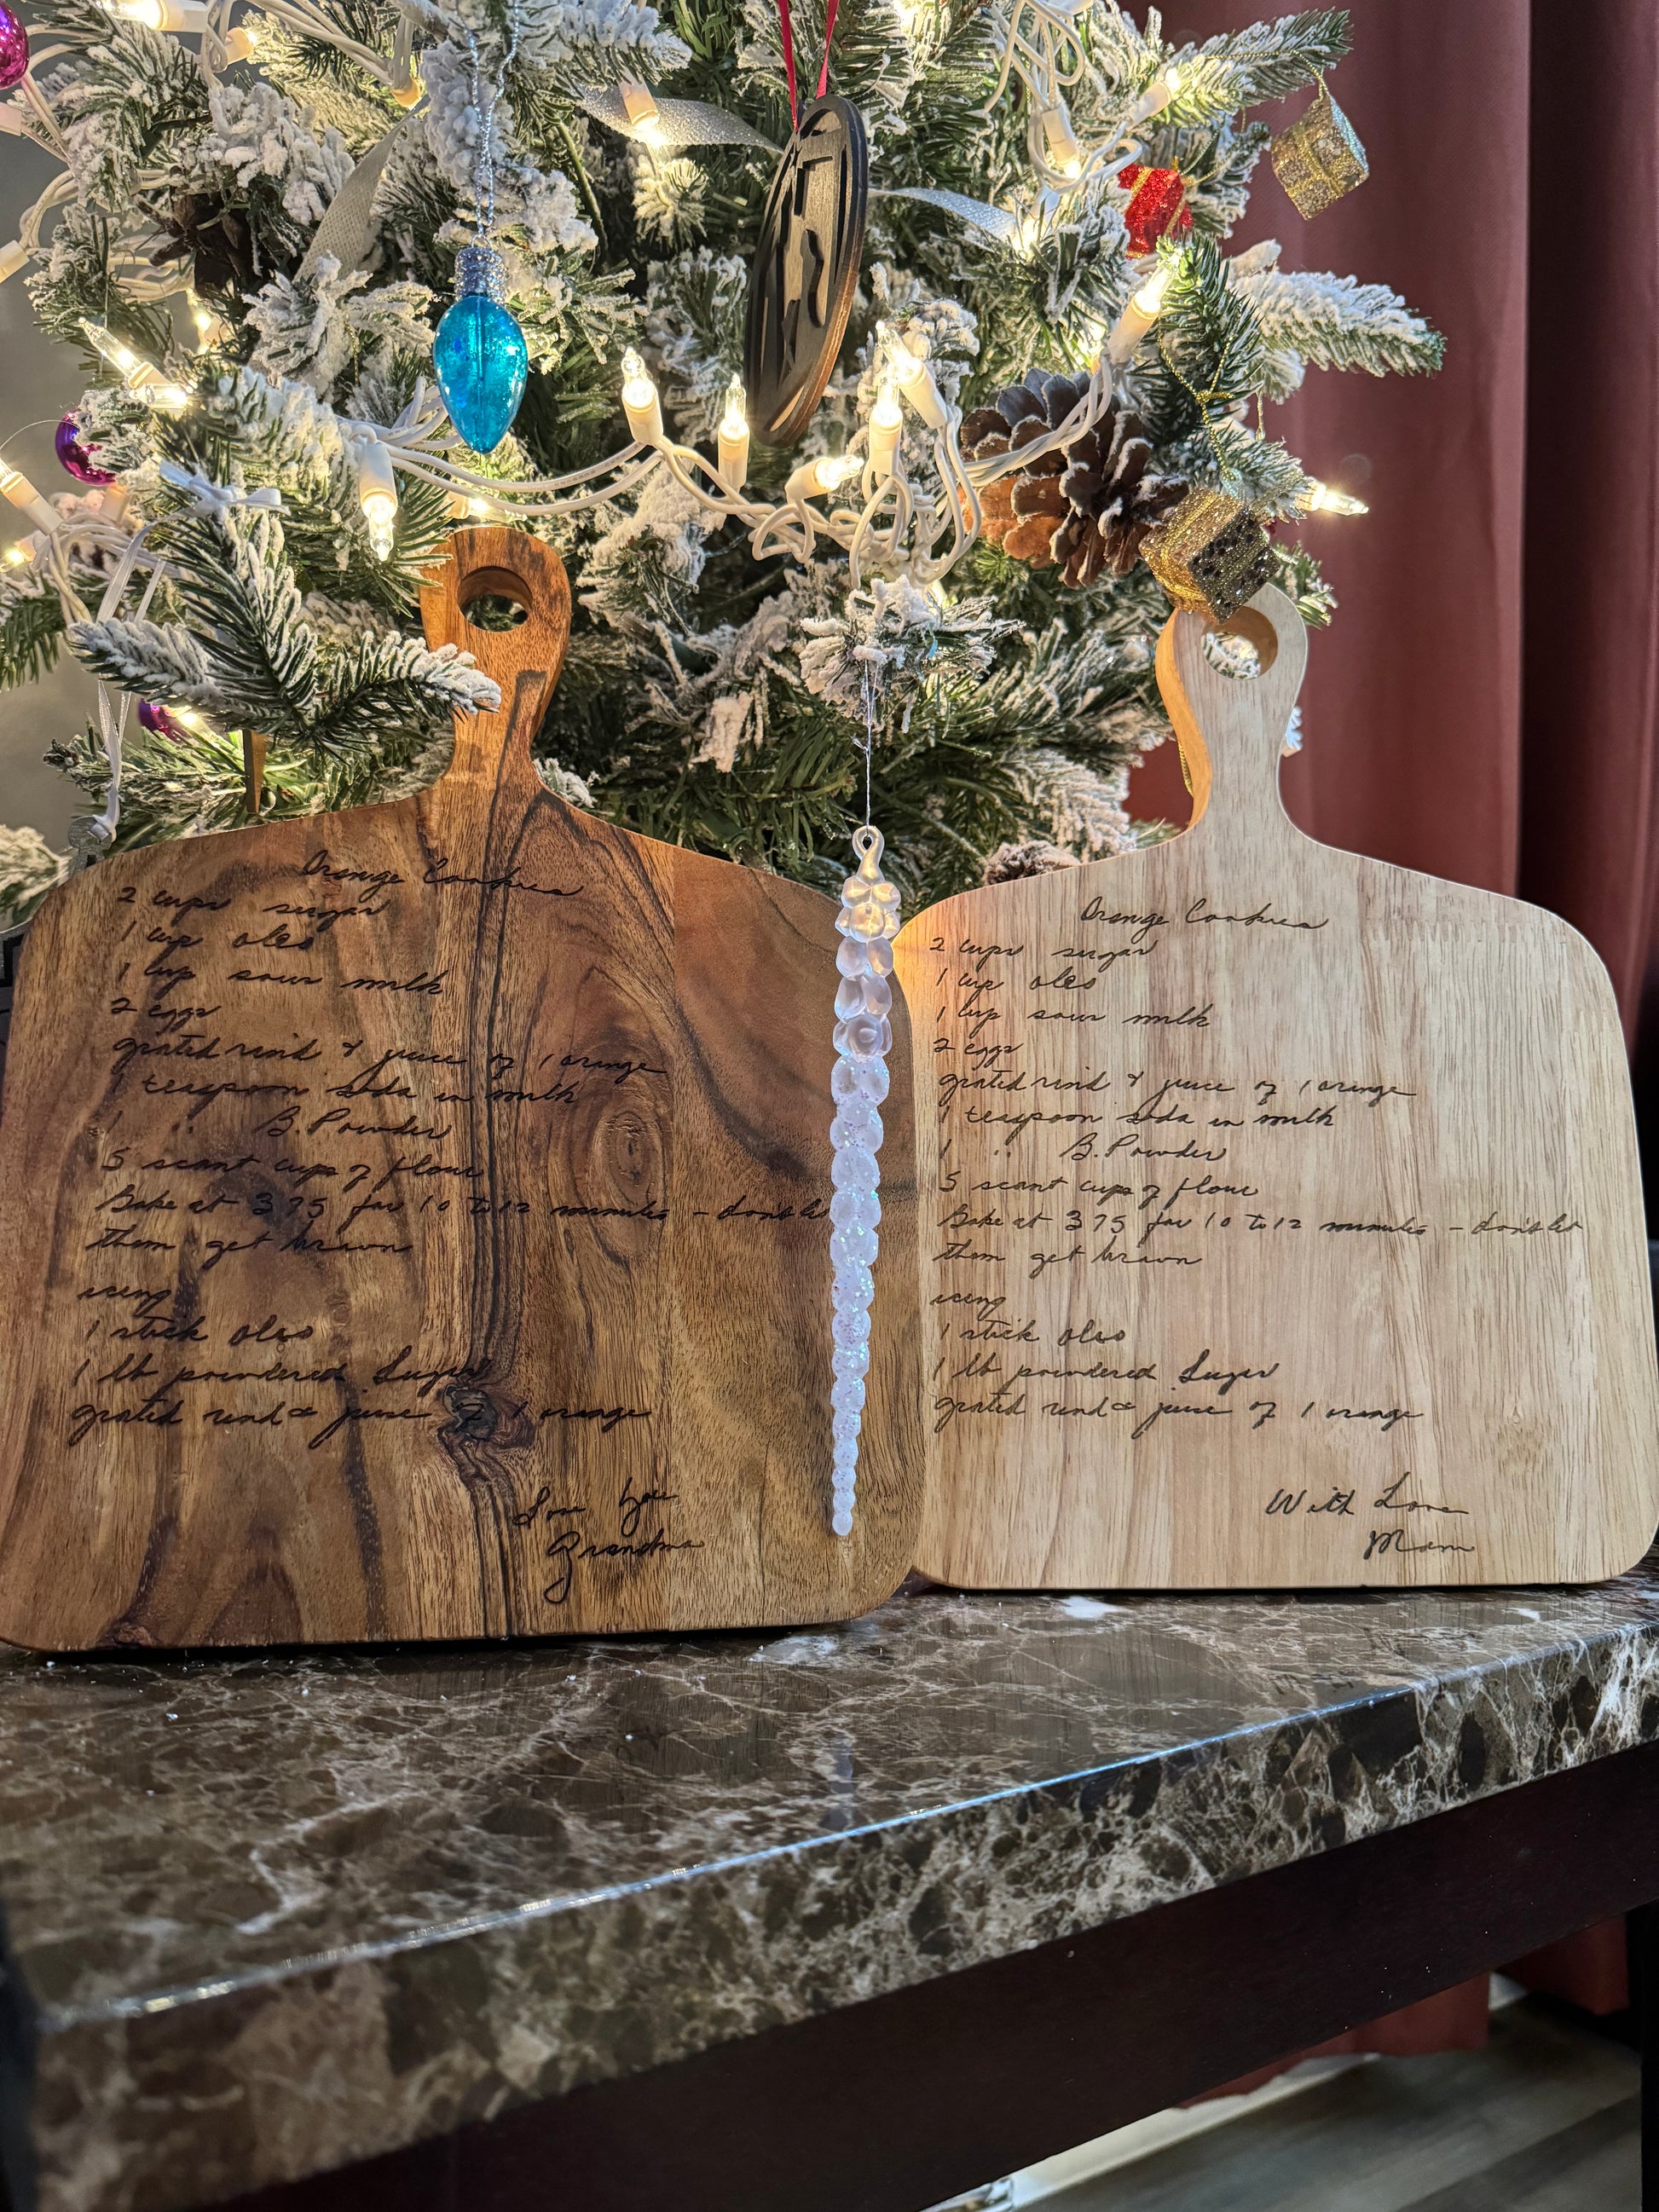 Orange Cookies
2 cups sugar
1 cup oleo
1 cup sour milk
2 eggs
grated rind & juice of 1 orange
1 teaspoon soda in milk
1 " B. Powder
5 scant cups of flour
Bake at 375 for 10 to 12 minutes - don't let
them get brown
icing
1 stick oleo
1 lb powdered Sugar
grated rind & juice of 1 orange
Love you
Grandma
Orange Cookies
2 cups sugar
1 cup oleo
1 cup sour milk
2 eggs
grated rind & juice of 1 orange
1 teaspoon soda in milk
1 " B. Powder
5 scant cups of flour
Bake at 375 for 10 to 12 minutes - don't let
them get brown
icing
1 stick oleo
1 lb powdered Sugar
grated rind & juice of 1 orange
With Love
Mom